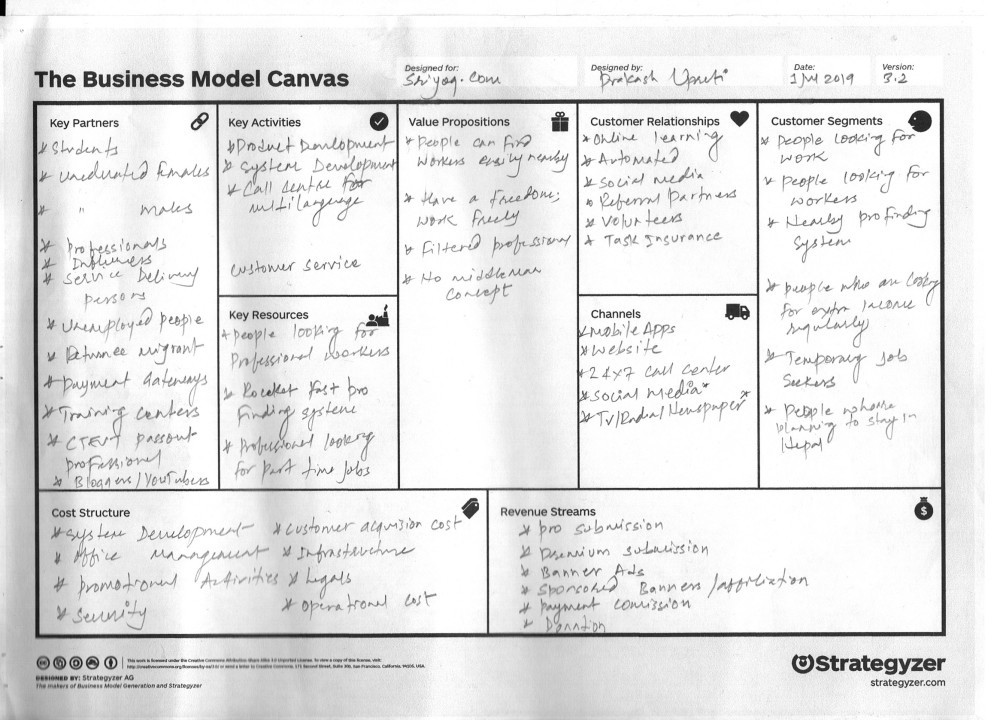 The Business Model Canvas
Designed for:
Sriyog.com
Designed by:
Prakash Upreti
Date:
1 Jul 2019
Version:
3.2
Key Partners
* Students
* uneducated females
* " males
* Professionals
* Influners
* Service Delivery
persons
* Unemployed people
* Returnee migrant
* Payment Gateways
* Training centers
* CTEVT passout
professional
* Bloggers/YouTubers
Key Activities
* Product Development
* System Development
* Call centre for
multilanguage
Customer service
Key Resources
* People looking for
Professional workers
* Rocket fast pro
Finding system
* Professional looking
for part time jobs
Value Propositions
* People can find
workers easily nearby
* Have a freedom;
work freely
* Filtered professionary
* No middleman
concept
Customer Relationships
* Online learning
* Automated
* Social media
* Referral Partners
* Volunteers
* Task Insurance
Channels
* Mobile Apps
* Website
* 24x7 call center
* Social media*
* Tv/Radio/Newspaper*
Customer Segments
* People looking for
work
* People looking for
workers
* Nearby pro finding
system
* people who are looking
for extra income
regularly
* Temporary job
seekers
* People
planning to stay in
Nepal
Cost Structure
* System Development
* Office Management
* Promotional Activities
* Security
* Customer acquision cost
* Infrastructure
* Legals
* Operational cost
Revenue Streams
* pro submission
* Premium submission
* Banner Ads
* Sponsored Banners/affiliation
* payment comission
* Donation
This work is licensed under the Creative Commons Attribution-Share Alike 3.0 Unported License. To view a copy of this license, visit:
http://creativecommons.org/licenses/by-sa/3.0/ or send a letter to Creative Commons, 171 Second Street, Suite 300, San Francisco, California, 94105, USA.
DESIGNED BY: Strategyzer AG
The makers of Business Model Generation and Strategyzer
Strategyzer
strategyzer.com